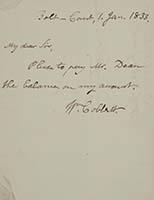 Bolt-Court, 1 Jan. 1833.
My dear Sir,
Please to pay Mr. Dean
the balance on my account.
Wm. Cobbett.